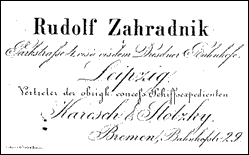 Rudolf Zahradnik
Parkstraße 4, vis à vis dem Dresdner Bahnhofe.
Leipzig
Vertreter des obrigk. concess. Schiffsexpedienten
Karesch & Stotzky
Bremen, Bahnhofstr. 29